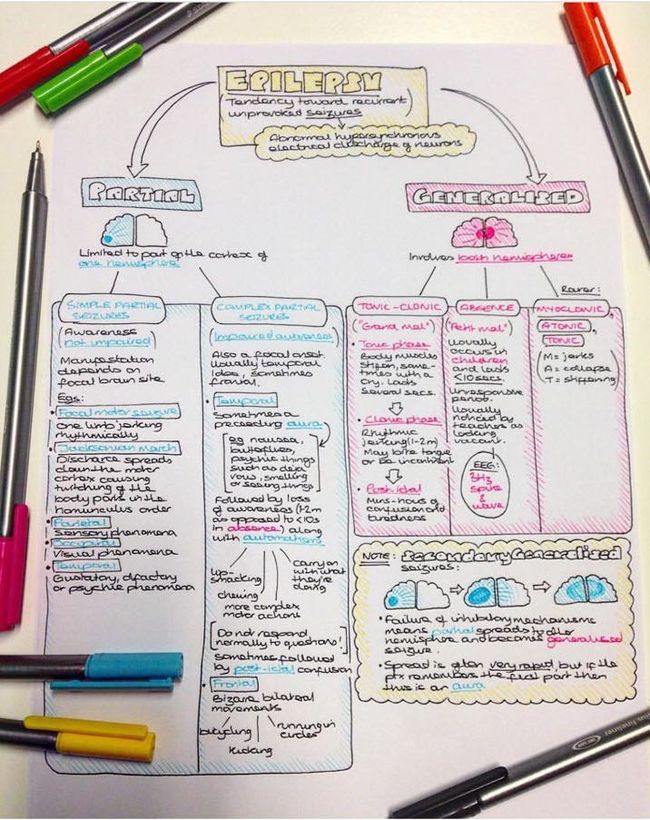 EPILEPSY
(Tendency toward recurrent
unprovoked seizures)
Abnormal hypersynchronous
electrical discharge of neurons
PARTIAL
Limited to part of the cortex of
one hemisphere
SIMPLE PARTIAL
SEIZURES
(Awareness
not impaired)
Manifestation
depends on
focal brain site
Egs:
• Focal motor seizure
One limb jerking
rhythmically
• Jacksonian march
Discharge spreads
down the motor
cortex causing
twitching of the
body parts in the
homunculus order
• Parietal
Sensory phenomena
• Occipital
Visual phenomena
• Temporal
Gustatory, olfactory
or psychic phenomena
COMPLEX PARTIAL
SEIZURES
(Impaired awareness)
Also a focal onset.
Usually temporal
lobe, sometimes
frontal.
• Temporal
Sometimes a
preceeding aura
eg nausea,
butterflies,
psychic things
such as deja
vous, smelling
or seeing things
Followed by loss
of awareness (1-2m
as opposed to <10s
in absence) along
with automatisms
lip-
smacking
chewing
more complex
motor actions
carry on
with what
they're
doing
[Do not respond
normally to questions!]
Sometimes followed
by post-ictal confusion
• Frontal
Bizare bilateral
movements
bicycling
kicking
running in
circles
GENERALIZED
Involves both hemispheres
Rarer:
TONIC-CLONIC
("Grand mal")
• Tonic phase
Body muscles
stiffen, some-
times with a
cry. Lasts
several secs.
• Clonic phase
Rhythmic
jerking (1-2m)
May bite tongue
or be incontinent
• Post-ictal
Mins-hours of
confusion and
tiredness
ABSENCE
("Petit mal")
Usually
occurs in
children
and lasts
<10secs.
Unresponsive
period.
Usually
noticed by
teachers as
looking
vacant.
EEG:
3Hz
spike
& wave
MYOCLONIC,
ATONIC,
TONIC
(M = jerks
A = collapse
T = stiffening)
NOTE: Secondary Generalised
seizures:
• Failure of inhibitory mechanisms
means partial spreads to other
hemisphere and becomes generalised
seizure.
• Spread is often very rapid, but if the
ptx remembers the first part then
this is an aura
plus fineliner